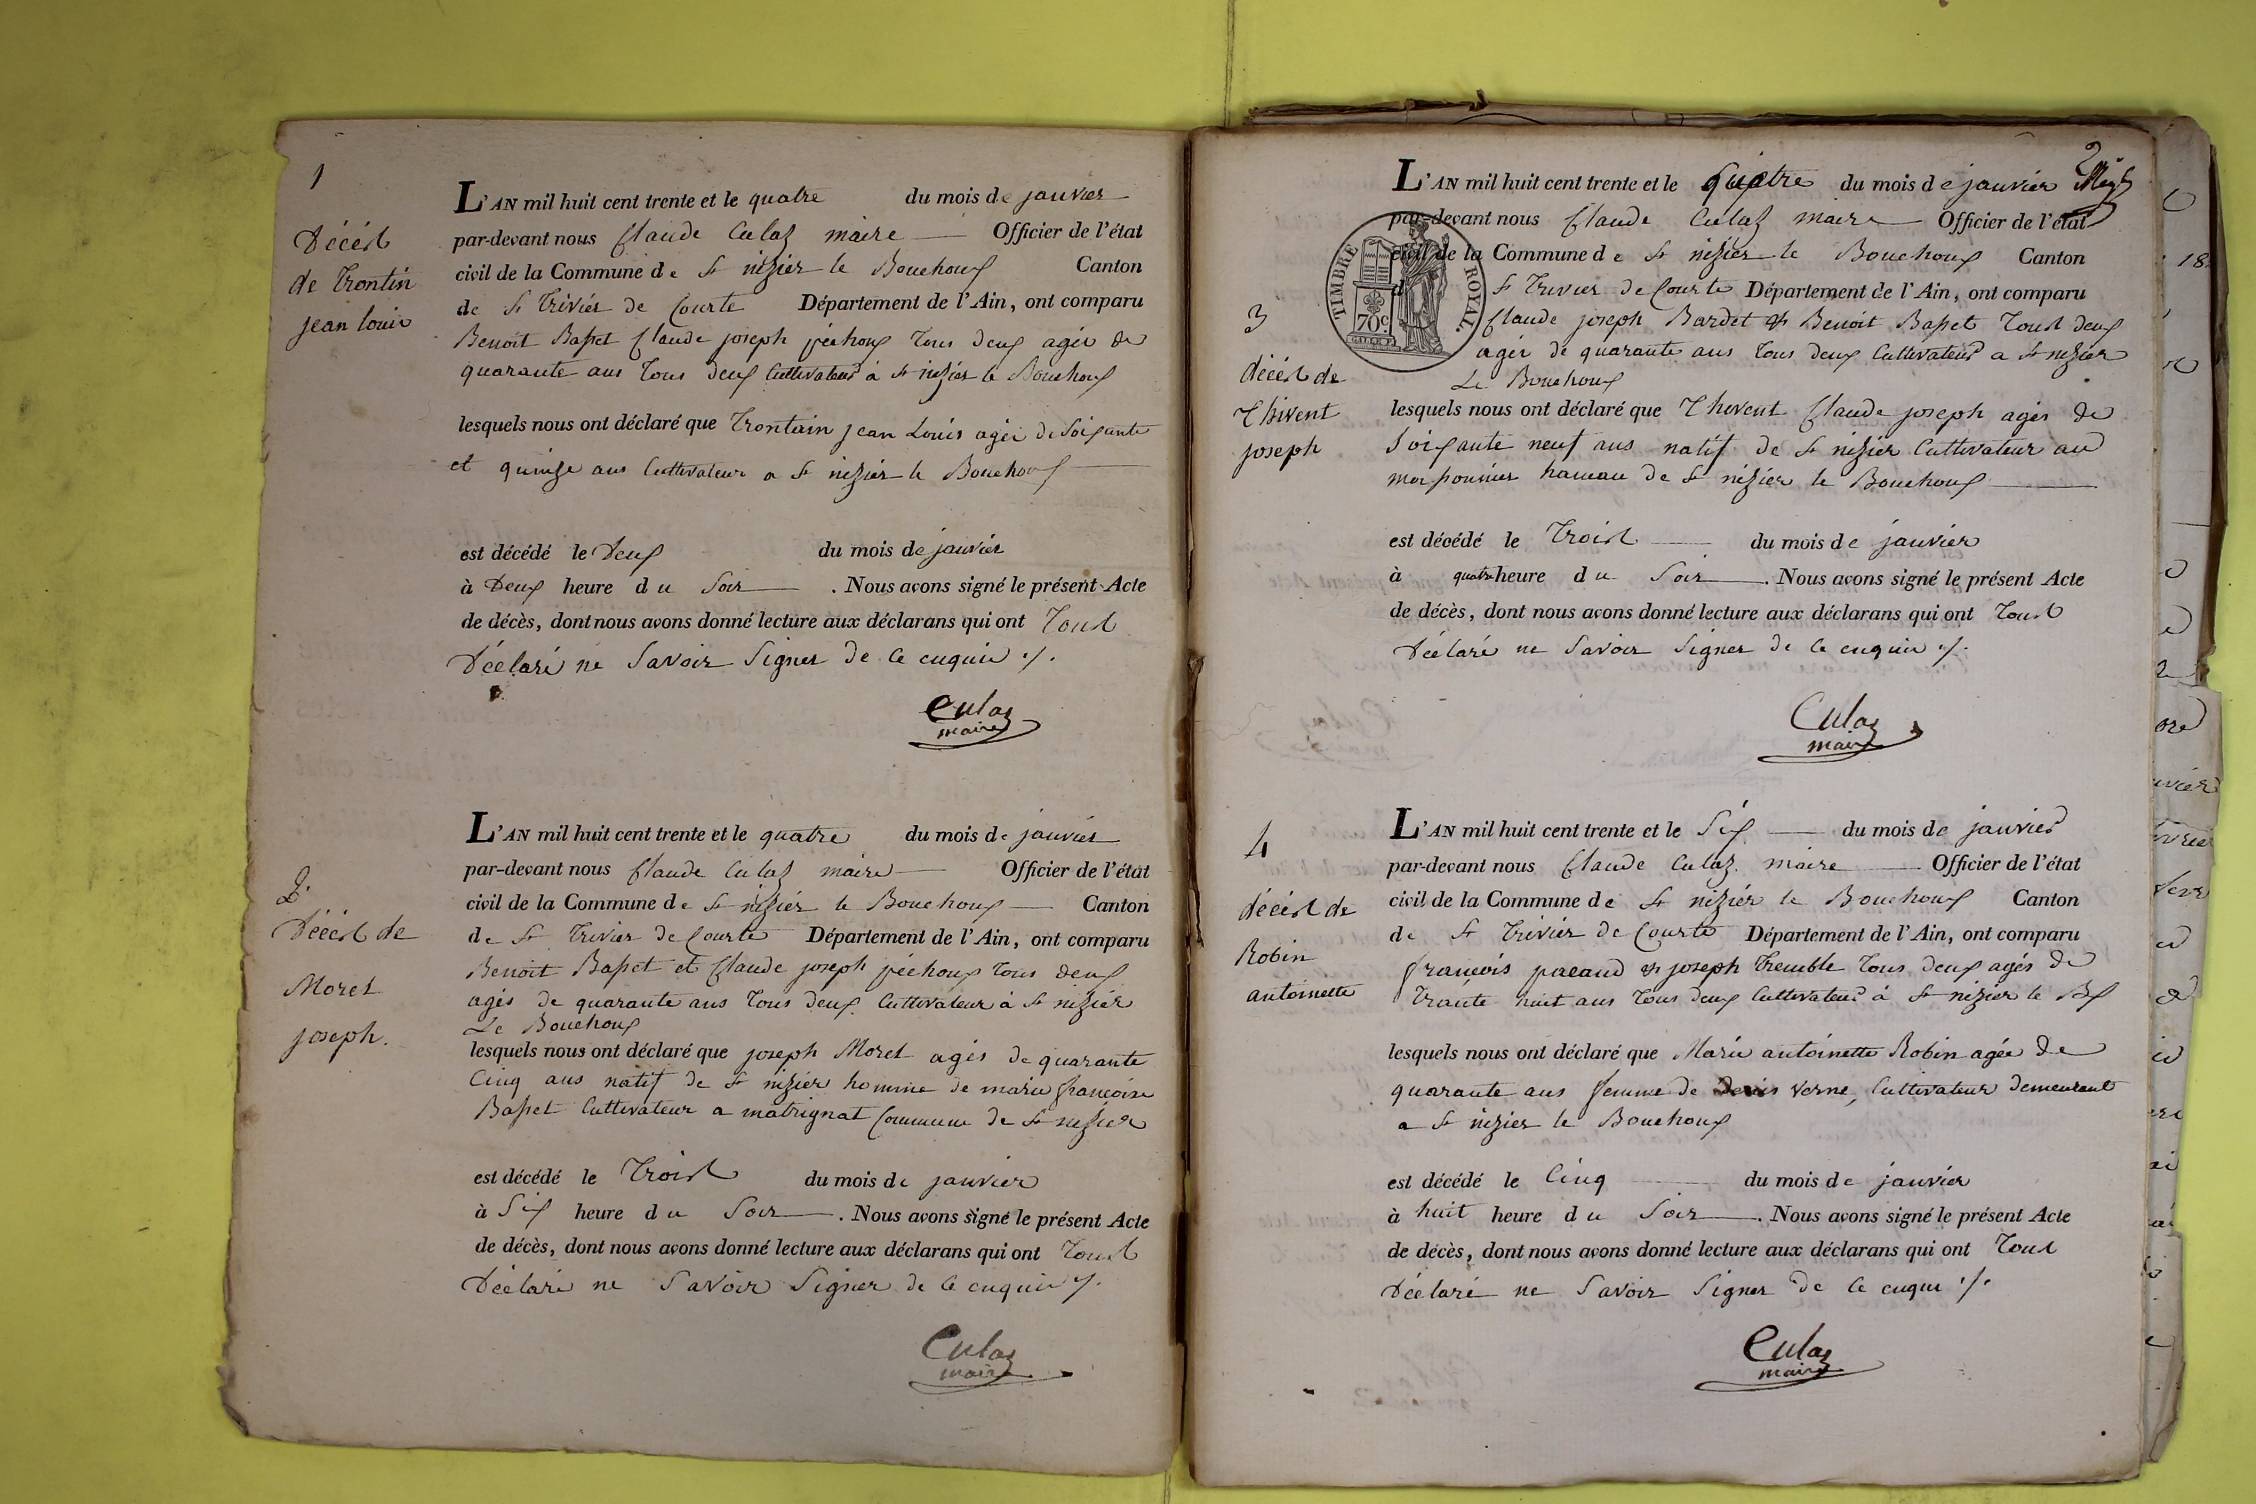 1
Décès
de Trontin
jean louis
L'AN mil huit cent trente et le quatre du mois de janvier
par-devant nous Claude Culaz maire Officier de l'état
civil de la Commune de St nizier le Bouchoux Canton
de St Trivier de Courte Département de l'Ain, ont comparu
Benoit Basset Claude joseph péchoux tous deux agés de
quarante ans tous deux Cultivateurs à St nizier le Bouchoux
lesquels nous ont déclaré que Trontain jean Louis agée de Soixante
et quinze ans Cultivateur a St nizier le Bouchoux
est décédé le Deux du mois de janvier
à Deux heure du Soir . Nous avons signé le présent Acte
de décès, dont nous avons donné lecture aux déclarans qui ont Tous
Déclaré ne Savoir Signer de ce enquis ./.
Culaz
maire
2.
Décès de
Morel
joseph.
L'AN mil huit cent trente et le quatre du mois de janvier
par-devant nous Claude Culaz maire Officier de l'état
civil de la Commune de St nizier le Bouchoux Canton
de St Trivier de Courte Département de l'Ain, ont comparu
Benoit Basset et Claude joseph péchoux tous deux
agés de quarante ans tous deux Cultivateur à St nizier
Le Bouchoux
lesquels nous ont déclaré que joseph Morel agés de quarante
Cinq ans natif de St nizier homme de marie françoise
Basset Cultivateur a matrignat Commune de St nizier
est décédé le Trois du mois de janvier
à Six heure du Soir . Nous avons signé le présent Acte
de décès, dont nous avons donné lecture aux déclarans qui ont Tous
Déclaré ne Savoir Signer de ce enquis ./.
Culaz
maire
2
TIMBRE ROYAL.
70c
3
décès de
Thivent
joseph
L'AN mil huit cent trente et le quatre du mois de janvier
par-devant nous Claude Culaz maire Officier de l'état
civil de la Commune de St nizier le Bouchoux Canton
d St Trivier de Courte Département de l'Ain, ont comparu
Claude joseph Bardet et Benoit Basset Tous deux
agés de quarante ans tous deux Cultivateurs a St nizier
Le Bouchoux
lesquels nous ont déclaré que Thevent Claude joseph agés de
Soixante neuf ans natif de St nizier Cultivateur au
hameau de St nizier le Bouchoux
est décédé le Trois du mois de janvier
à quatre heure du Soir . Nous avons signé le présent Acte
de décès, dont nous avons donné lecture aux déclarans qui ont Tous
Déclaré ne Savoir Signer de ce enquis ./.
Culaz
maire
4
décès de
Robin
antoinette
L'AN mil huit cent trente et le Six du mois de janvier
par-devant nous Claude Culaz maire Officier de l'état
civil de la Commune de St nizier le Bouchoux Canton
de St Trivier de Courte Département de l'Ain, ont comparu
françois pacaud et joseph Tremble tous deux agés de
Trante huit ans tous deux Cultivateurs à St nizier le Bx
lesquels nous ont déclaré que Marie antoinette Robin agée de
quarante ans femme de denis verne, Cultivateur demeurant
a St nizier le Bouchoux
est décédé le Cinq du mois de janvier
à huit heure du Soir . Nous avons signé le présent Acte
de décès, dont nous avons donné lecture aux déclarans qui ont Tous
Déclaré ne Savoir Signer de ce enqui ./.
Culaz
maire
18